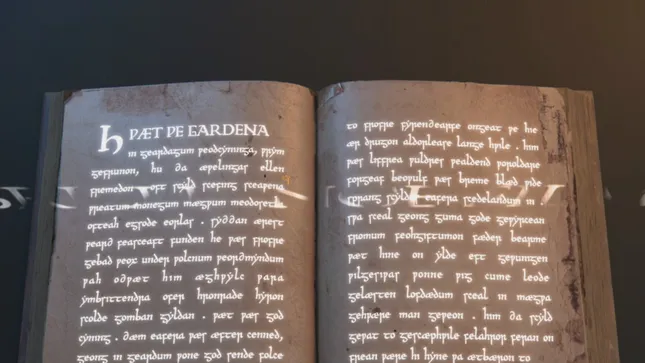 HǷÆT ǷE GARDENA
in geardagum þeodcyninga, þrym
gefrunon, hu ða æþelingas ellen
fremedon oft scyld scefing sceaþena
þreatum monegum mægþum meodosetla
ofteah egsode eorlas . syððan ærest
ƿearð feasceaft funden he þæs frofre
gebad ƿeox under ƿolcnum ƿeorðmyndum
þah oðþæt him æghƿylc þara
ymbsittendra ofer hronrade hyran
scolde gomban gyldan . þæt ƿæs god
cyning . ðæm eafera ƿæs æfter cenned,
geong in geardum þone god sende folce
to frofre fyrendearfe ongeat þe hie
ær drugon aldorlease lange hƿile . him
þæs liffrea ƿuldres ƿealdend ƿoroldare
forgeaf beoƿulf ƿæs breme blæd ƿide
sprang scyldes eafera scedelandum in
sƿa sceal geong guma gode geƿyrcean
fromum feohgiftum on fæder bearme
þæt hine on ylde eft geƿunigen
ƿilgesiþas þonne ƿig cume leode
gelæsten lofdædum sceal in mægþa
gehƿære man geþeon . him ða scyld
geƿat to gescæphƿile felahror feran on
frean ƿære hi hyne þa ætbæron to